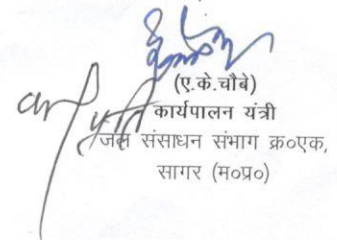 (ए.के.चौबे)
कार्यपालन यंत्री
जल संसाधन संभाग क्र०एक,
सागर (म०प्र०)